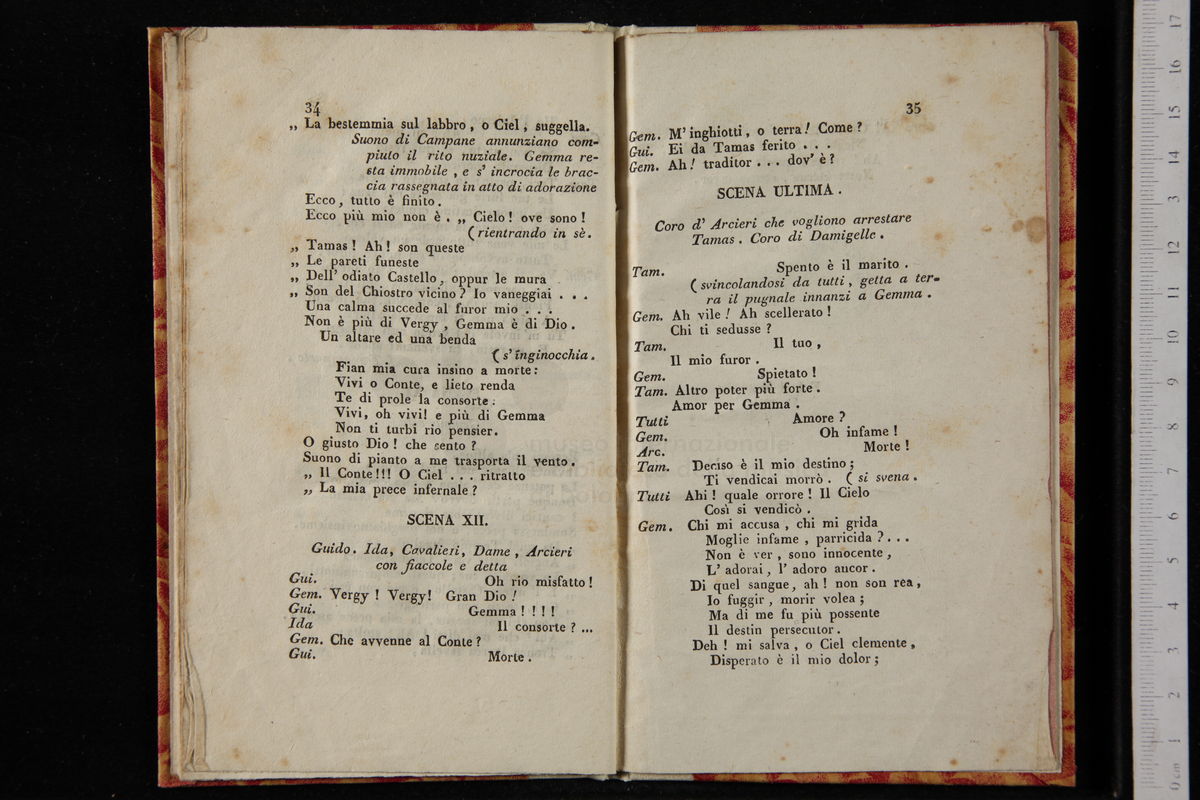 34
„ La bestemmia sul labbro, o Ciel, suggella.
Suono di Campane annunziano com-
piuto il rito nuziale. Gemma re-
sta immobile, e s' incrocia le brac-
cia rassegnata in atto di adorazione
Ecco, tutto è finito.
Ecco più mio non è. „ Cielo! ove sono!
(rientrando in sè.
„ Tamas! Ah! son queste
„ Le pareti funeste
„ Dell' odiato Castello, oppur le mura
„ Son del Chiostro vicino? Io vaneggiai . . .
Una calma succede al furor mio . . .
Non è più di Vergy, Gemma è di Dio.
Un altare ed una benda
(s' inginocchia.
Fian mia cura insino a morte:
Vivi o Conte, e lieto renda
Te di prole la consorte:
Vivi, oh vivi! e più di Gemma
Non ti turbi rio pensier.
O giusto Dio! che sento?
Suono di pianto a me trasporta il vento.
„ Il Conte!!! O Ciel . . . ritratto
„ La mia prece infernale?
SCENA XII.
Guido. Ida, Cavalieri, Dame, Arcieri
con fiaccole e detta
Gui. Oh rio misfatto!
Gem. Vergy! Vergy! Gran Dio!
Gui. Gemma!!!!
Ida Il consorte? ...
Gem. Che avvenne al Conte?
Gui. Morte.
35
Gem. M' inghiotti, o terra! Come?
Gui. Ei da Tamas ferito . . .
Gem. Ah! traditor . . . dov' è?
SCENA ULTIMA.
Coro d' Arcieri che vogliono arrestare
Tamas. Coro di Damigelle.
Tam. Spento è il marito.
(svincolandosi da tutti, getta a ter-
ra il pugnale innanzi a Gemma.
Gem. Ah vile! Ah scellerato!
Chi ti sedusse?
Tam. Il tuo,
Il mio furor.
Gem. Spietato!
Tam. Altro poter più forte.
Amor per Gemma.
Tutti Amore?
Gem. Oh infame!
Arc. Morte!
Tam. Deciso è il mio destino;
Ti vendicai morrò. (si svena.
Tutti Ahi! quale orrore! Il Cielo
Così si vendicò.
Gem. Chi mi accusa, chi mi grida
Moglie infame, parricida? . . .
Non è ver, sono innocente,
L' adorai, l' adoro ancor.
Di quel sangue, ah! non son rea,
Io fuggir, morir volea;
Ma di me fu più possente
Il destin persecutor.
Deh! mi salva, o Ciel clemente,
Disperato è il mio dolor;
0 cm 1 2 3 4 5 6 7 8 9 10 11 12 13 14 15 16 17